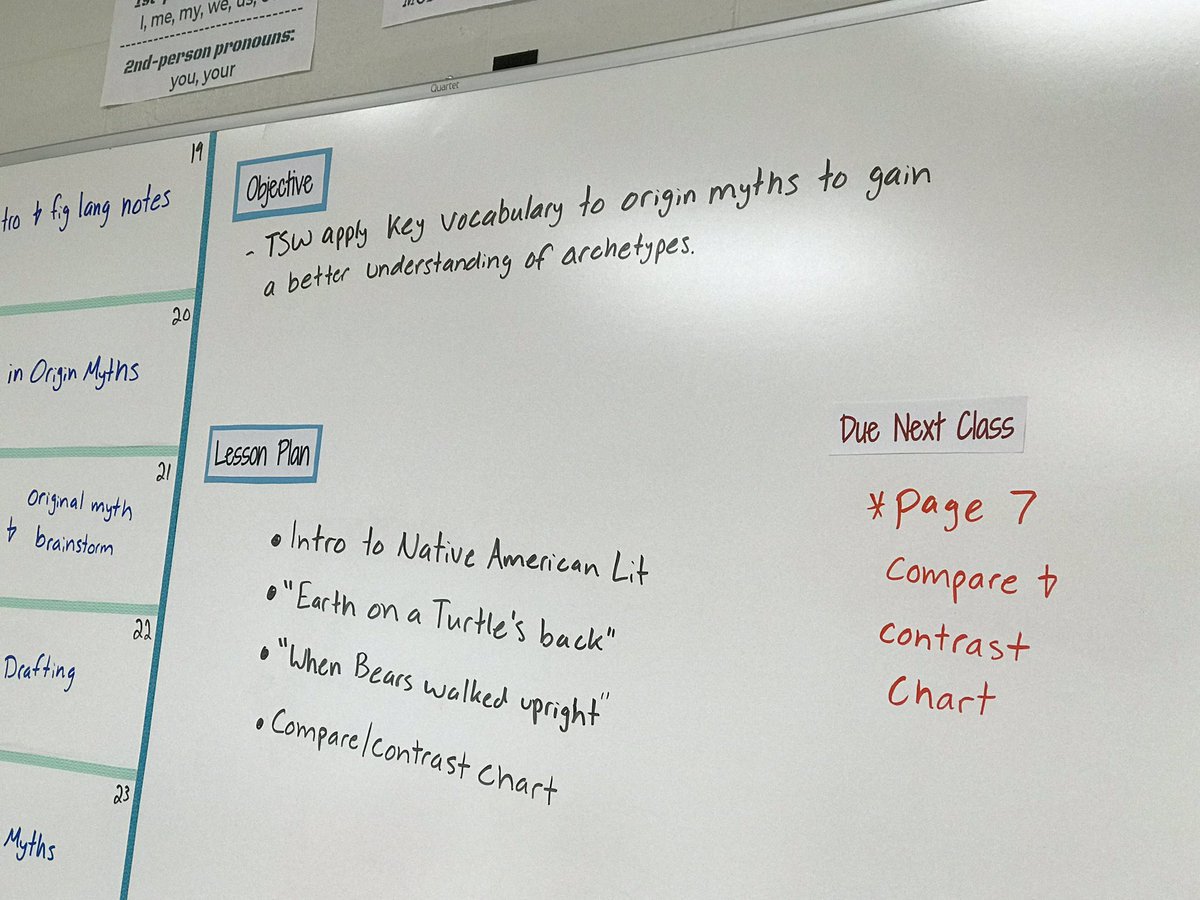 I, me, my, we, us,
2nd-person pronouns:
you, your
Quartet
19
fig lang notes
20
in Origin Myths
21
Original myth
& brainstorm
22
Drafting
23
Myths
Objective
- TSW apply key vocabulary to origin myths to gain
a better understanding of archetypes.
Lesson Plan
• Intro to Native American Lit
• "Earth on a Turtle's back"
• "When Bears walked upright"
• Compare/contrast Chart
Due Next Class
*Page 7
Compare &
contrast
Chart